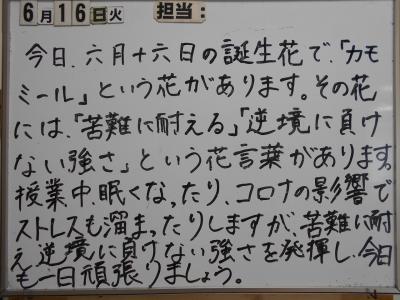 6月16日火 担当:
今日、六月十六日の誕生花で、「カモ
ミール」という花があります。その花
には、「苦難に耐える」「逆境に負け
ない強さ」という花言葉があります。
授業中、眠くなったり、コロナの影響で
ストレスも溜まったりしますが、苦難に耐
え、逆境に負けない強さを発揮し、今日
も一日頑張りましょう。